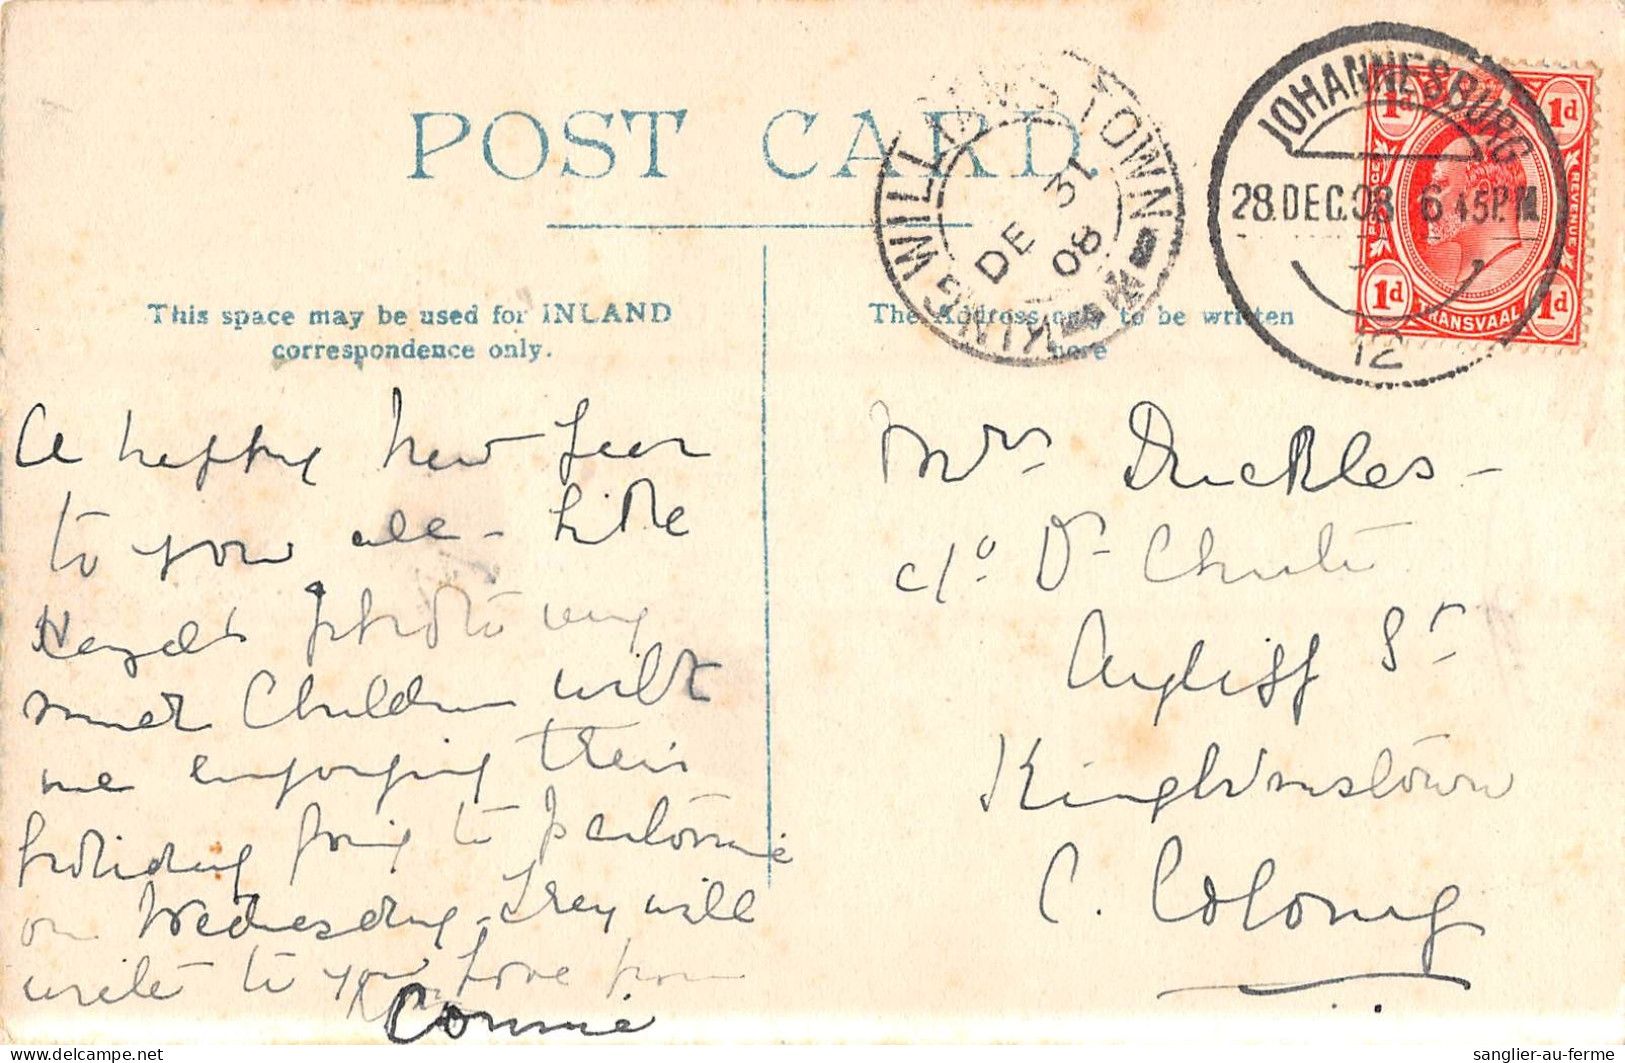 POST CARD.
KING WILLIAMS TOWN
DE 31
08
JOHANNESBURG
28.DEC.08 6.45P.M
12
1d 1d
POSTAGE REVENUE
1d 1d
TRANSVAAL
This space may be used for INLAND
correspondence only.
The Address only to be written
here
A happy New Year
to you all - like
photo very
much Children with
me enjoying their
holiday going to
on Wednesday - they will
write to you Love from
Connie
Mrs Duckles -
c/o Dr Chute
Ayliff St
KingWmstown
C. Colony
sanglier-au-ferme
delcampe.net